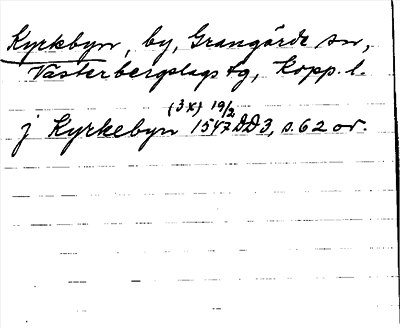 Kyrkbyn, by, Grangärde sn,
Västerbergslags tg, Kopp. l.
(3x) 19/2
j Kyrkebyn 1547 DD3, s. 62 or.